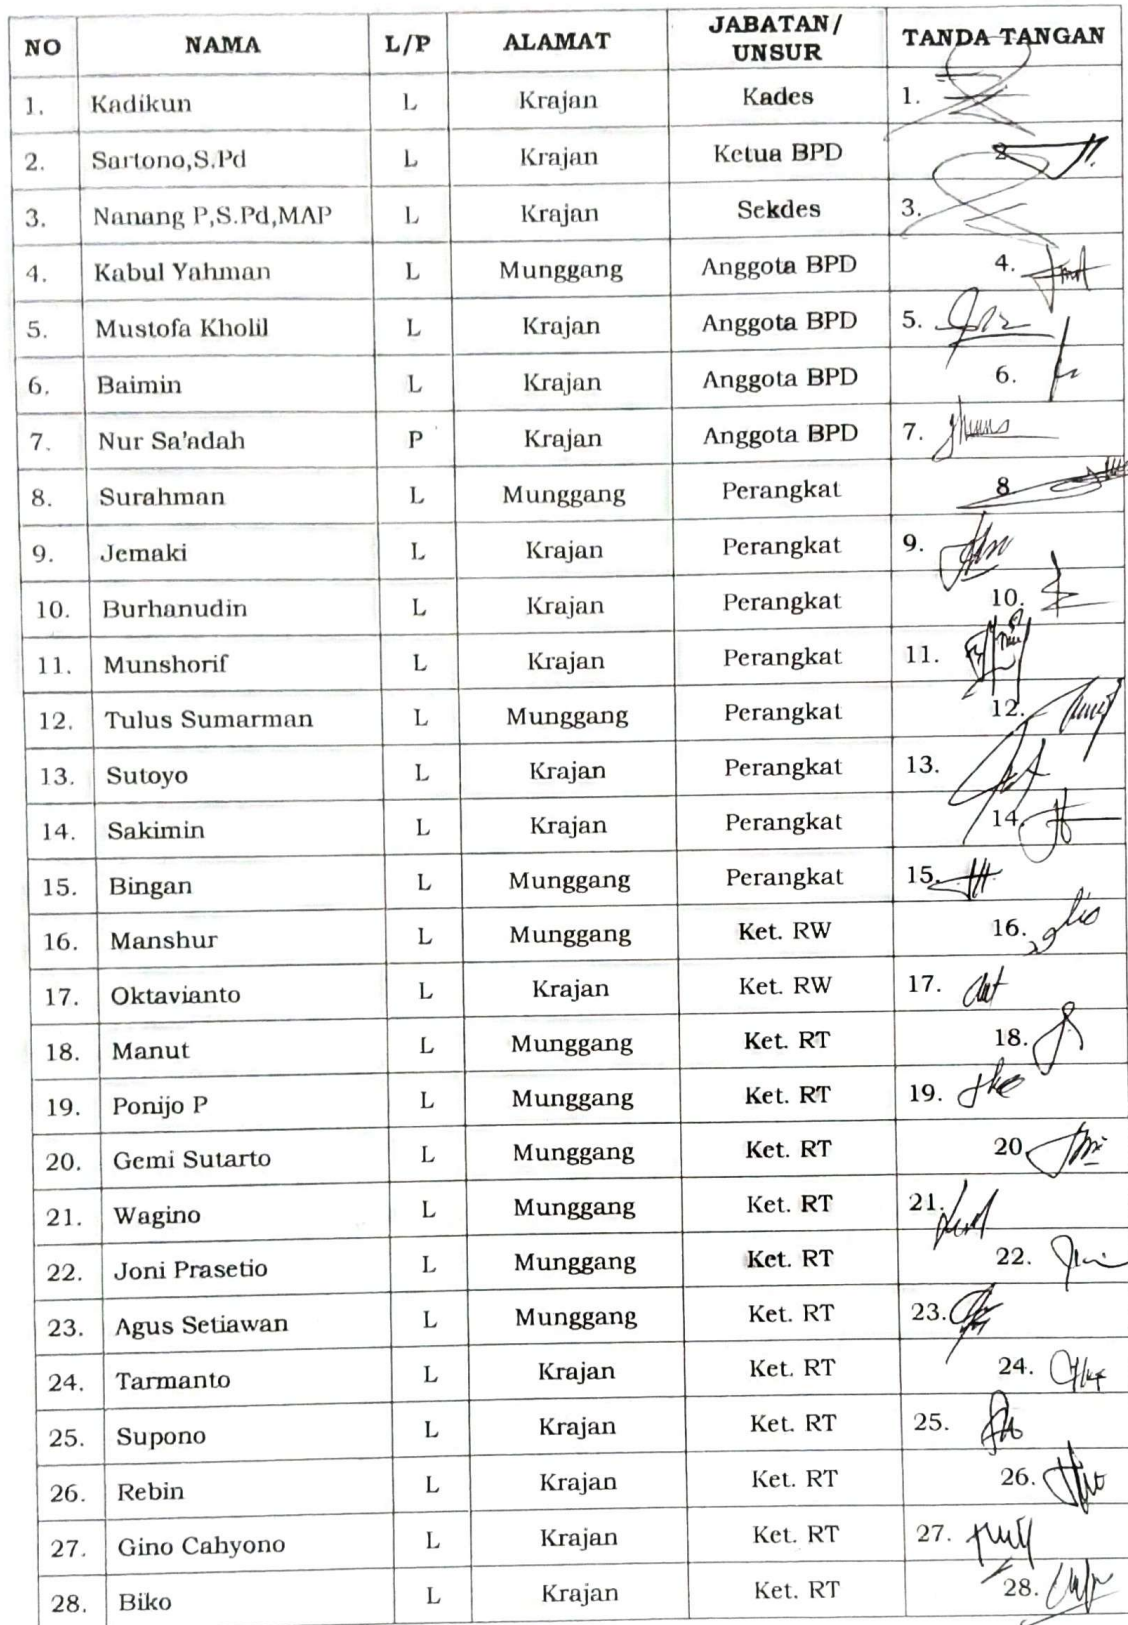 NO NAMA L/P ALAMAT JABATAN/ UNSUR TANDA TANGAN
1. Kadikun L Krajan Kades 1.
2. Sartono,S.Pd L Krajan Ketua BPD 2
3. Nanang P,S.Pd,MAP L Krajan Sekdes 3.
4. Kabul Yahman L Munggang Anggota BPD 4.
5. Mustofa Kholil L Krajan Anggota BPD 5.
6. Baimin L Krajan Anggota BPD 6.
7. Nur Sa'adah P Krajan Anggota BPD 7.
8. Surahman L Munggang Perangkat 8.
9. Jemaki L Krajan Perangkat 9.
10. Burhanudin L Krajan Perangkat 10.
11. Munshorif L Krajan Perangkat 11.
12. Tulus Sumarman L Munggang Perangkat 12.
13. Sutoyo L Krajan Perangkat 13.
14. Sakimin L Krajan Perangkat 14.
15. Bingan L Munggang Perangkat 15.
16. Manshur L Munggang Ket. RW 16.
17. Oktavianto L Krajan Ket. RW 17.
18. Manut L Munggang Ket. RT 18.
19. Ponijo P L Munggang Ket. RT 19.
20. Gemi Sutarto L Munggang Ket. RT 20
21. Wagino L Munggang Ket. RT 21.
22. Joni Prasetio L Munggang Ket. RT 22.
23. Agus Setiawan L Munggang Ket. RT 23.
24. Tarmanto L Krajan Ket. RT 24.
25. Supono L Krajan Ket. RT 25.
26. Rebin L Krajan Ket. RT 26.
27. Gino Cahyono L Krajan Ket. RT 27.
28. Biko L Krajan Ket. RT 28.